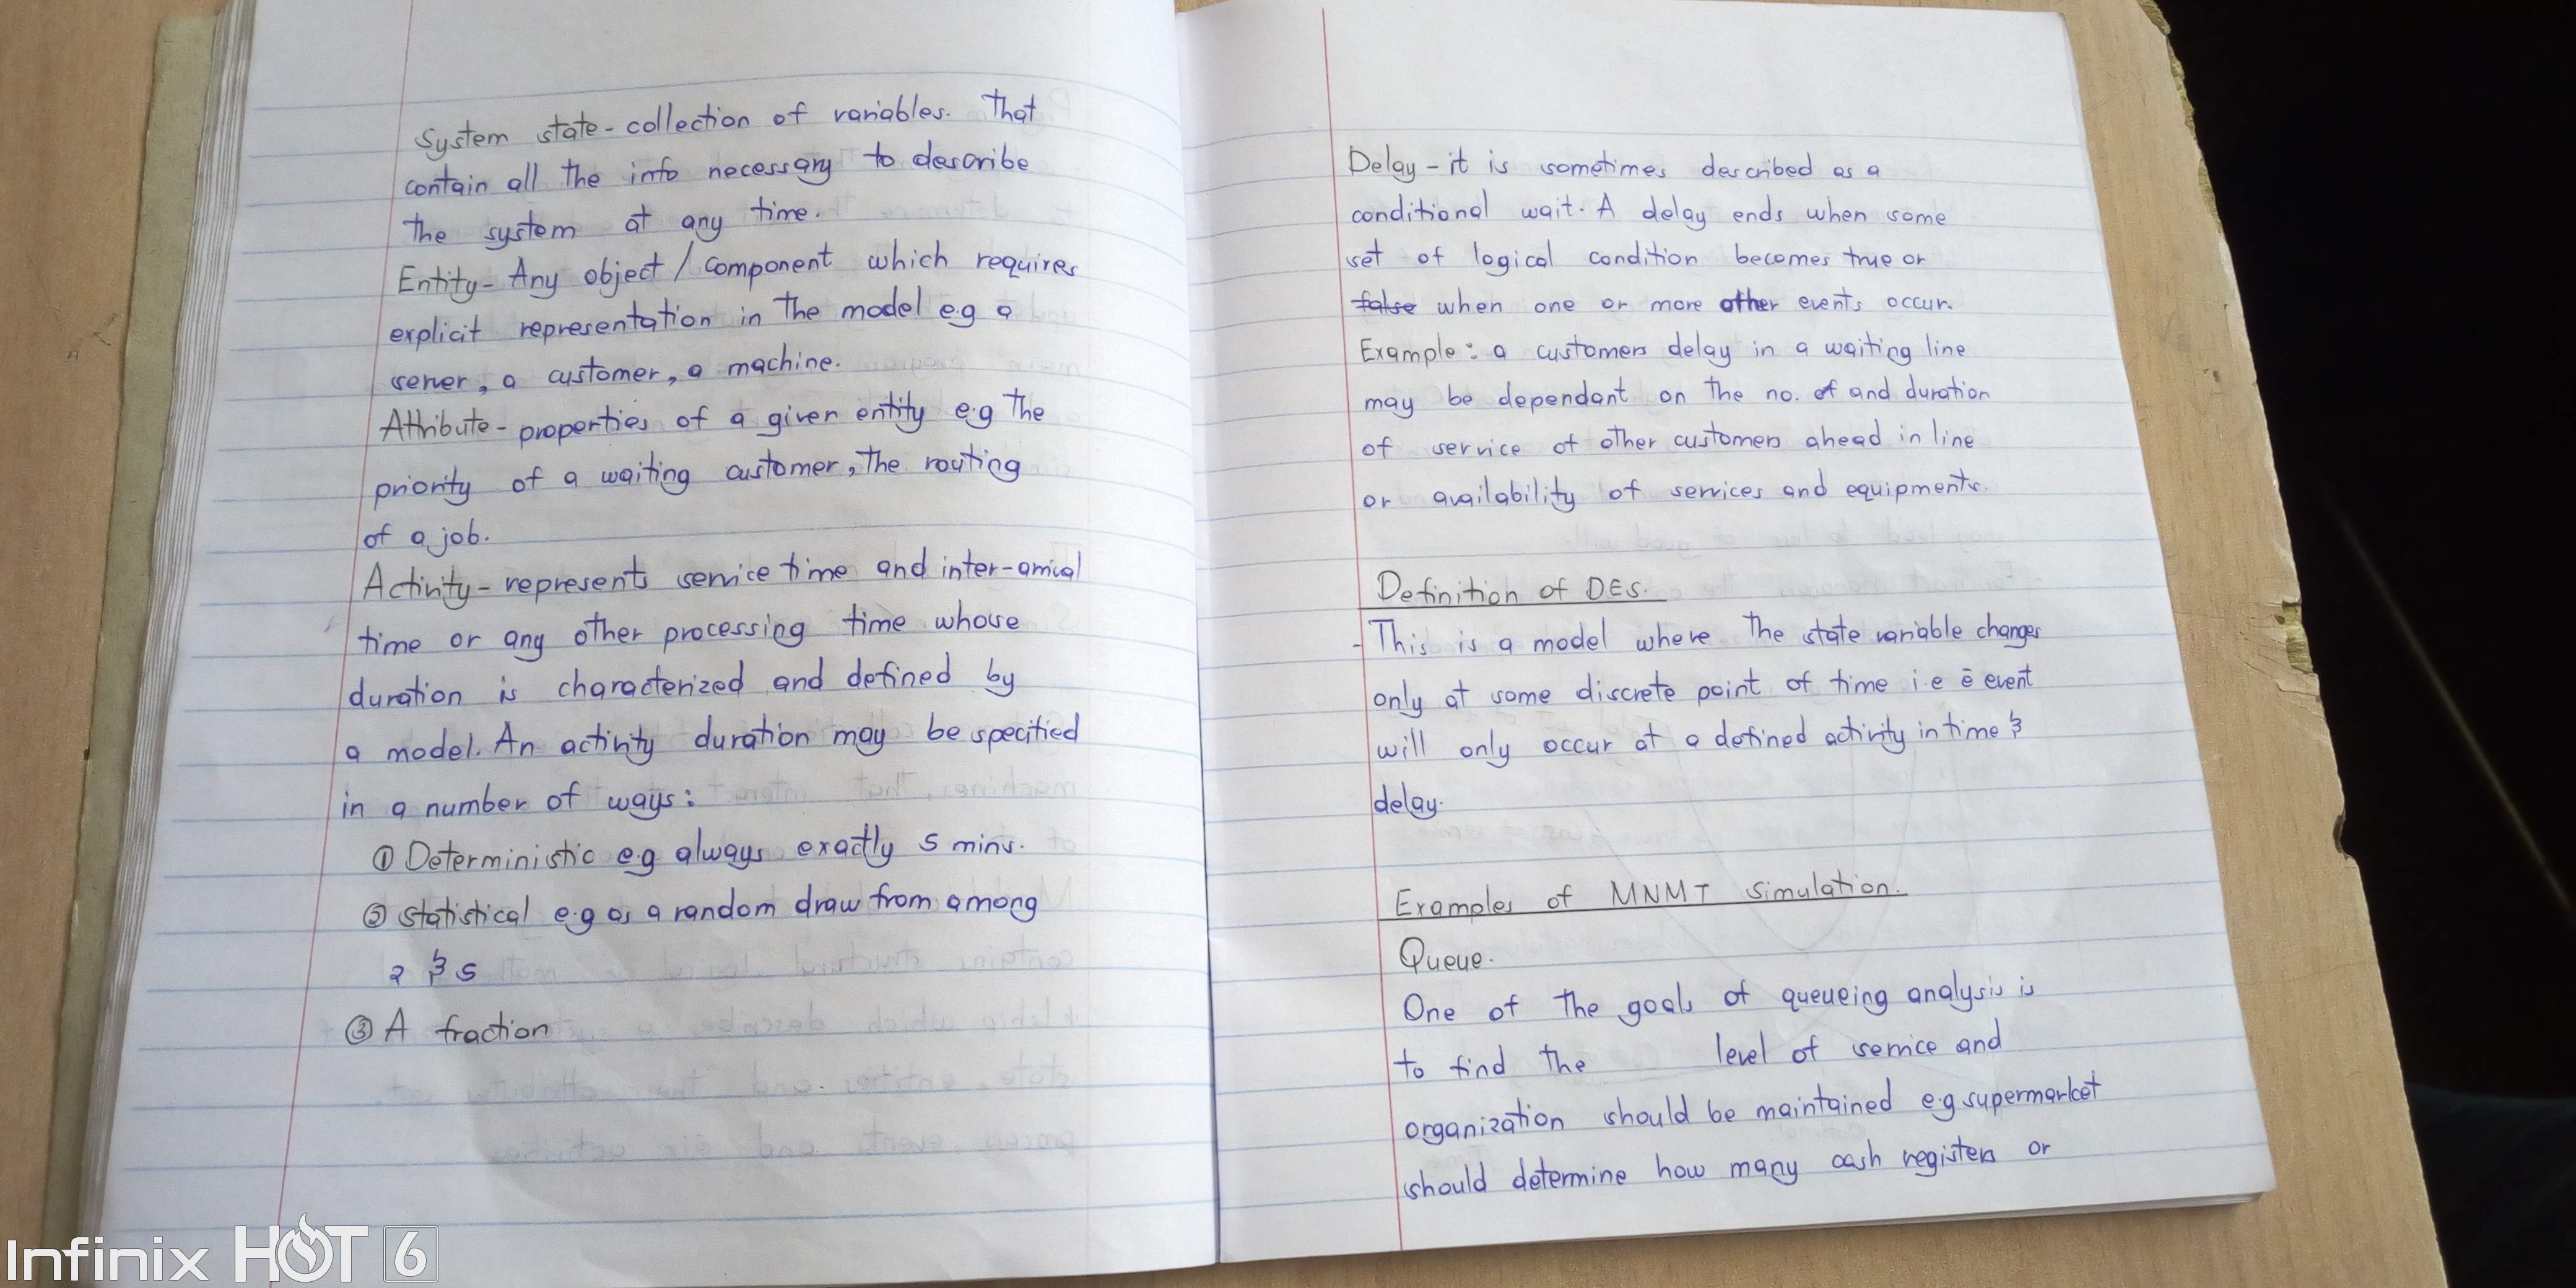 System state - collection of variables. That
contain all the info necessary to describe
the system at any time.
Entity - Any object / component which requires
explicit representation in the model e.g a
server, a customer, a machine.
Attribute - properties of a given entity e.g the
priority of a waiting customer, the routing
of a job.
Activity - represents service time and inter-arrival
time or any other processing time whose
duration is characterized and defined by
a model. An activity duration may be specified
in a number of ways:
① Deterministic e.g always exactly 5 mins.
② statistical e.g as a random draw from among
2 & 5
③ A fraction
Delay - it is sometimes described as a
conditional wait. A delay ends when some
set of logical condition becomes true or
false when one or more other events occur.
Example: a customers delay in a waiting line
may be dependant on the no. of and duration
of service of other customers ahead in line
or availability of services and equipments.
Definition of DES.
- This is a model where the state variable changes
only at some discrete point of time i.e ē event
will only occur at a defined activity in time &
delay.
Examples of MNMT simulation.
Queue.
One of the goals of queueing analysis is
to find the level of service and
organization should be maintained e.g supermarket
should determine how many cash registers or
Infinix HOT 6